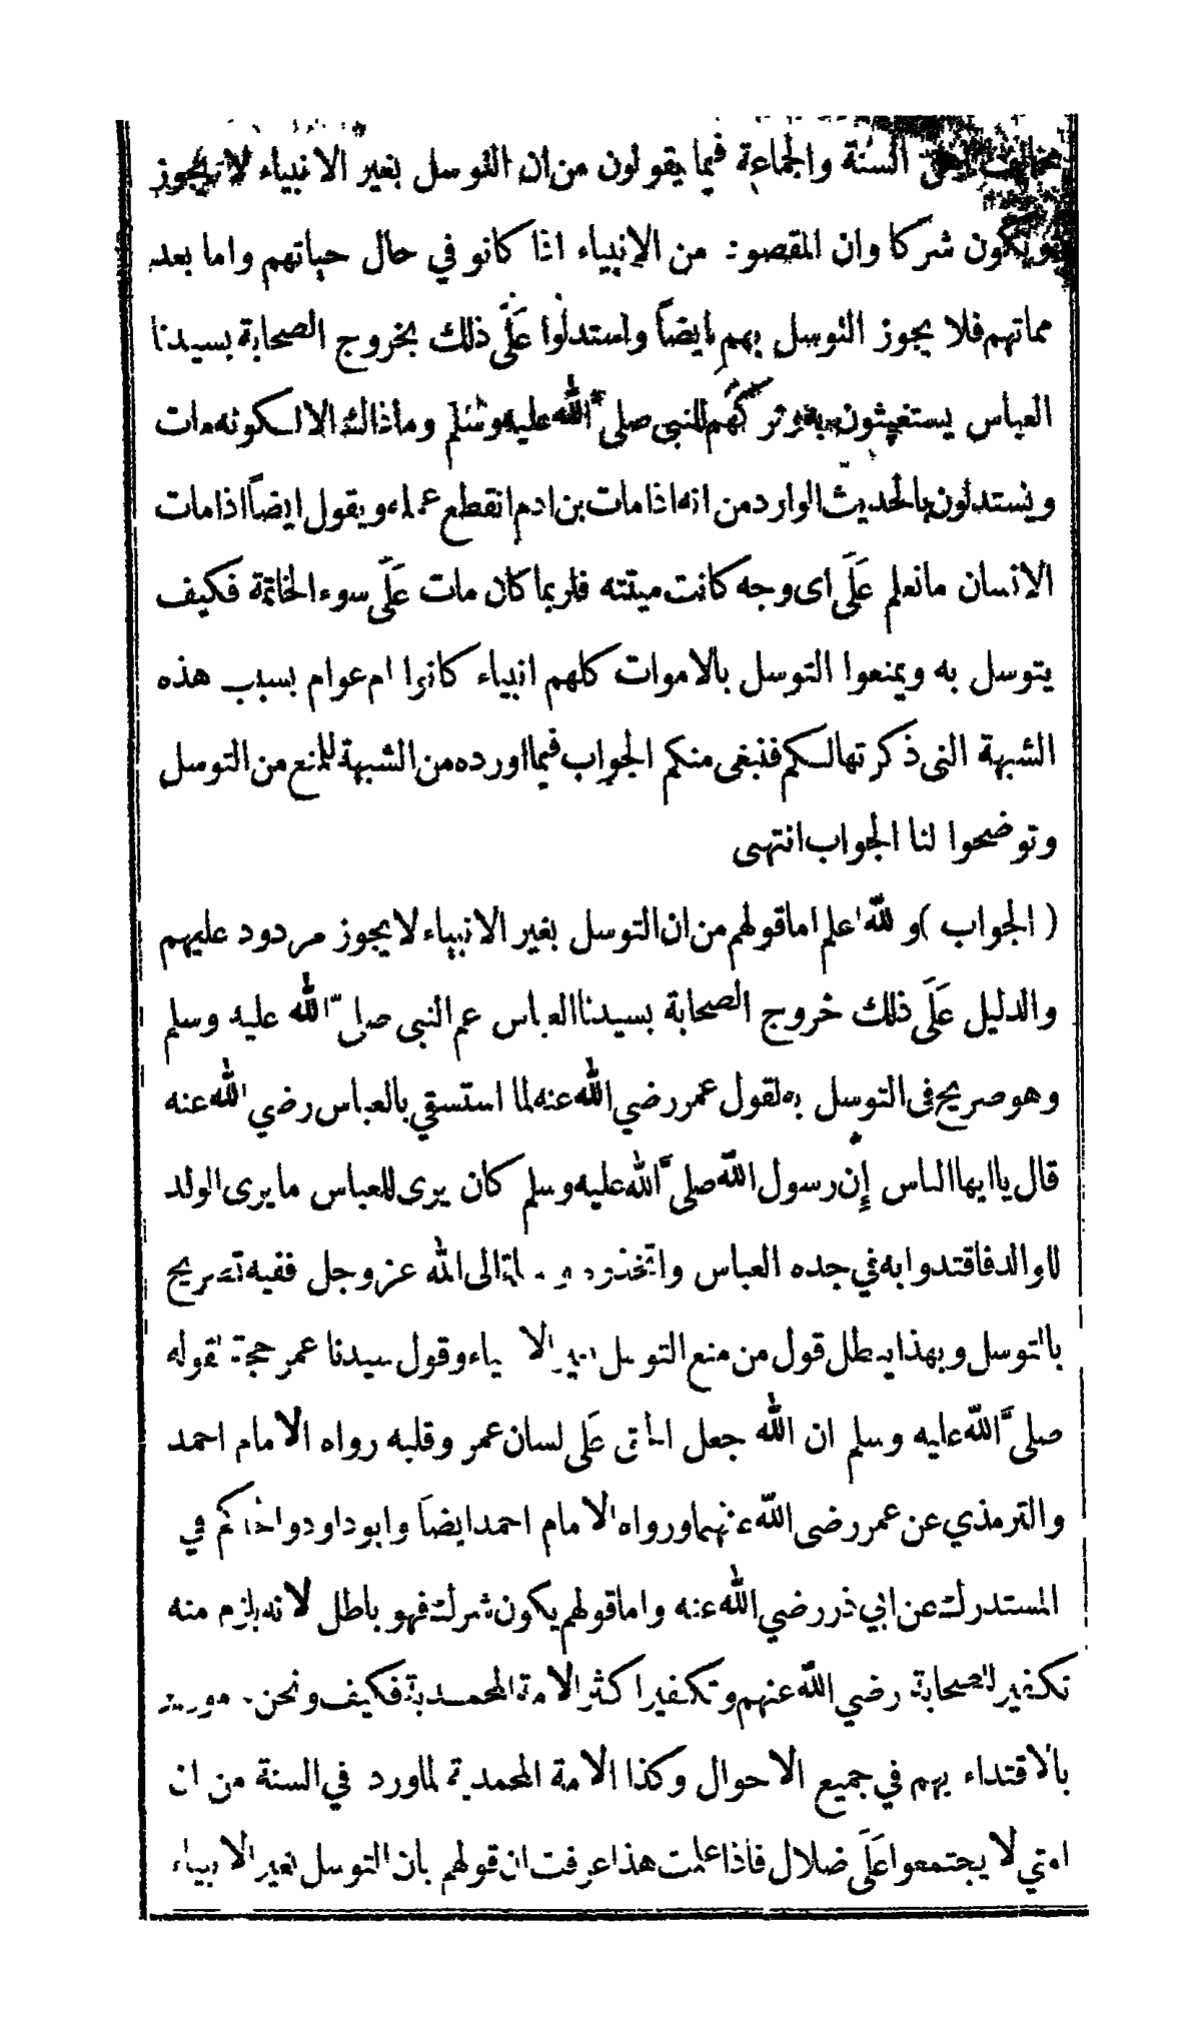 السنة والجماعة فيما يقولون من ان التوسل بغير الانبياء لا يجوز
ويكون شركا وان المقصود من الانبياء اذا كانو في حال حياتهم واما بعد
مماتهم فلا يجوز التوسل بهم ايضاً واستدلوا عَلَى ذلك بخروج الصحابة بسيدنا
العباس يستغيثون به وتركهم للنبي صلى الله عليه وسلم وماذالك الا لكونه مات
ويستدلون بالحديث الوارد من انه اذا مات بن ادم انقطع عمله ويقول ايضاً اذا مات
الانسان مانعلم عَلَى اى وجه كانت ميتته فلربما كان مات عَلَى سوء الخاتمة فكيف
يتوسل به ويمنعوا التوسل بالاموات كلهم انبياء كانوا ام عوام بسبب هذه
الشبهة التى ذكرتها لكم فنبغى منكم الجواب فيما اورده من الشبهة للمنع من التوسل
وتوضحوا لنا الجواب انتهى
( الجواب ) و لله اعلم اما قولهم من ان التوسل بغير الانبياء لا يجوز مردود عليهم
والدليل عَلَى ذلك خروج الصحابة بسيدنا العباس عم النبى صلى الله عليه وسلم
وهو صريح فى التوسل به لقول عمر رضي الله عنه لما استسقي بالعباس رضي الله عنه
قال يا ايها الناس إن رسول الله صلى الله عليه وسلم كان يرى للعباس ما يرى الولد
للوالد فاقتدوا به في جده العباس واتخذوه الى الله عز وجل ففيه تصريح
بالتوسل وبهذا يبطل قول من منع التوسل بغير الا ياء وقول سيدنا عمر حجة لقوله
صلى الله عليه وسلم ان الله جعل الحق عَلَى لسان عمر وقلبه رواه الامام احمد
والترمذي عن عمر رضى الله عنهما ورواه الامام احمد ايضاً وابو داود والحاكم في
المستدرك عن ابي ذر رضي الله عنه واما قولهم يكون شرك فهو باطل لانه يلزم منه
تكفير الصحابة رضي الله عنهم وتكفير اكثر الامة المحمدية فكيف ونحن
بالاقتداء بهم في جميع الاحوال وكذا الامة المحمدية لما ورد في السنة من ان
امتي لا يجتمعوا عَلَى ضلال فاذا علمت هذا عرفت ان قولهم بان التوسل بغير الانبياء